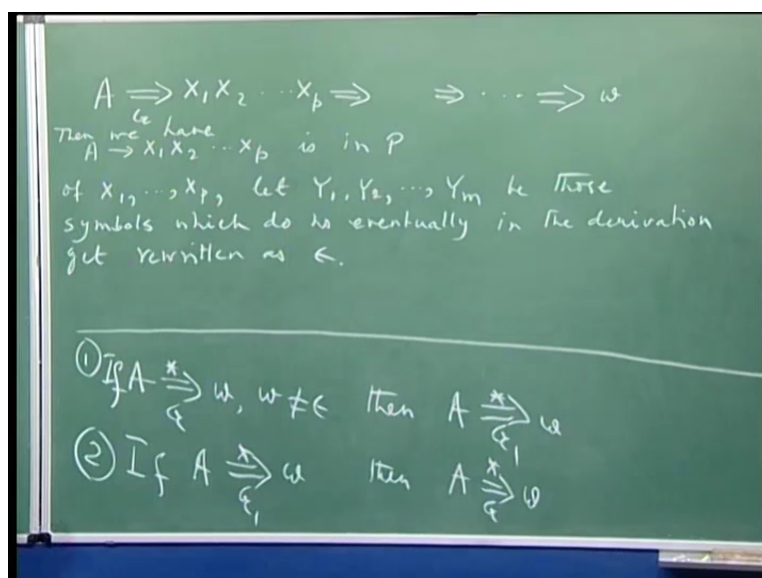 A ⇒ X₁ X₂ ⋯ Xₚ ⇒ ⇒ ⋯ ⇒ w
G
Then we have
A → X₁ X₂ ⋯ Xₚ is in P
of X₁, ⋯, Xₚ, let Y₁, Y₂, ⋯, Yₘ be those
symbols which do no eventually in the derivation
get rewritten as ϵ.
① If A *⇒G w, w ≠ ϵ then A *⇒G₁ w
② If A *⇒G₁ w then A *⇒G w